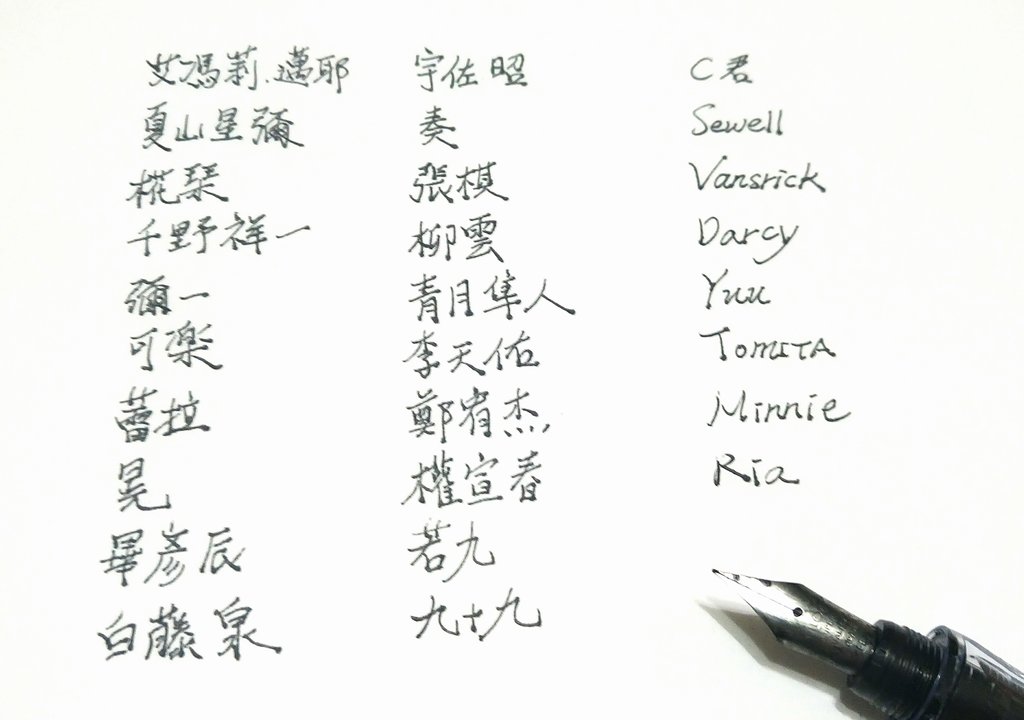 艾馮莉.邁耶
夏山星彌
椛琴
千野祥一
彌一
可樂
蕾拉
晃
畢彥辰
白藤泉
宇佐昭
奏
張棋
柳雲
青月隼人
李天佑
鄭宥杰
權宣春
若九
九十九
C君
Sewell
Vansrick
Darcy
Yuu
TOMITA
Minnie
Ria